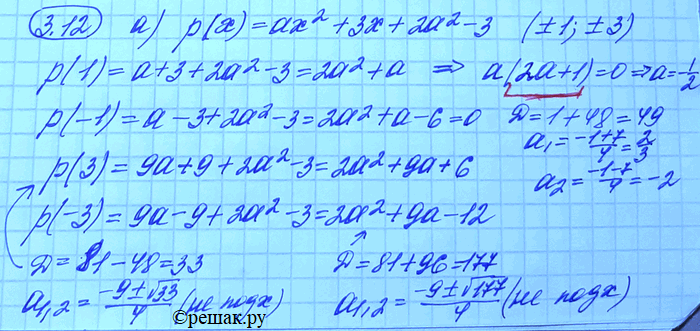 3.12 а) p(x) = ax² + 3x + 2a² - 3 (±1; ±3)
p(1) = a + 3 + 2a² - 3 = 2a² + a ⇒ a(2a+1) = 0 ⇒ a = -1/2
p(-1) = a - 3 + 2a² - 3 = 2a² + a - 6 = 0 Д = 1 + 48 = 49
a₁ = (-1+7)/4 = 2/3
p(3) = 9a + 9 + 2a² - 3 = 2a² + 9a + 6
a₂ = (-1-7)/4 = -2
p(-3) = 9a - 9 + 2a² - 3 = 2a² + 9a - 12
Д = 81 - 48 = 33 Д = 81 + 96 = 177
a₁,₂ = (-9±√33)/4 (не подх) a₁,₂ = (-9±√177)/4 (не подх)
©решак.ру